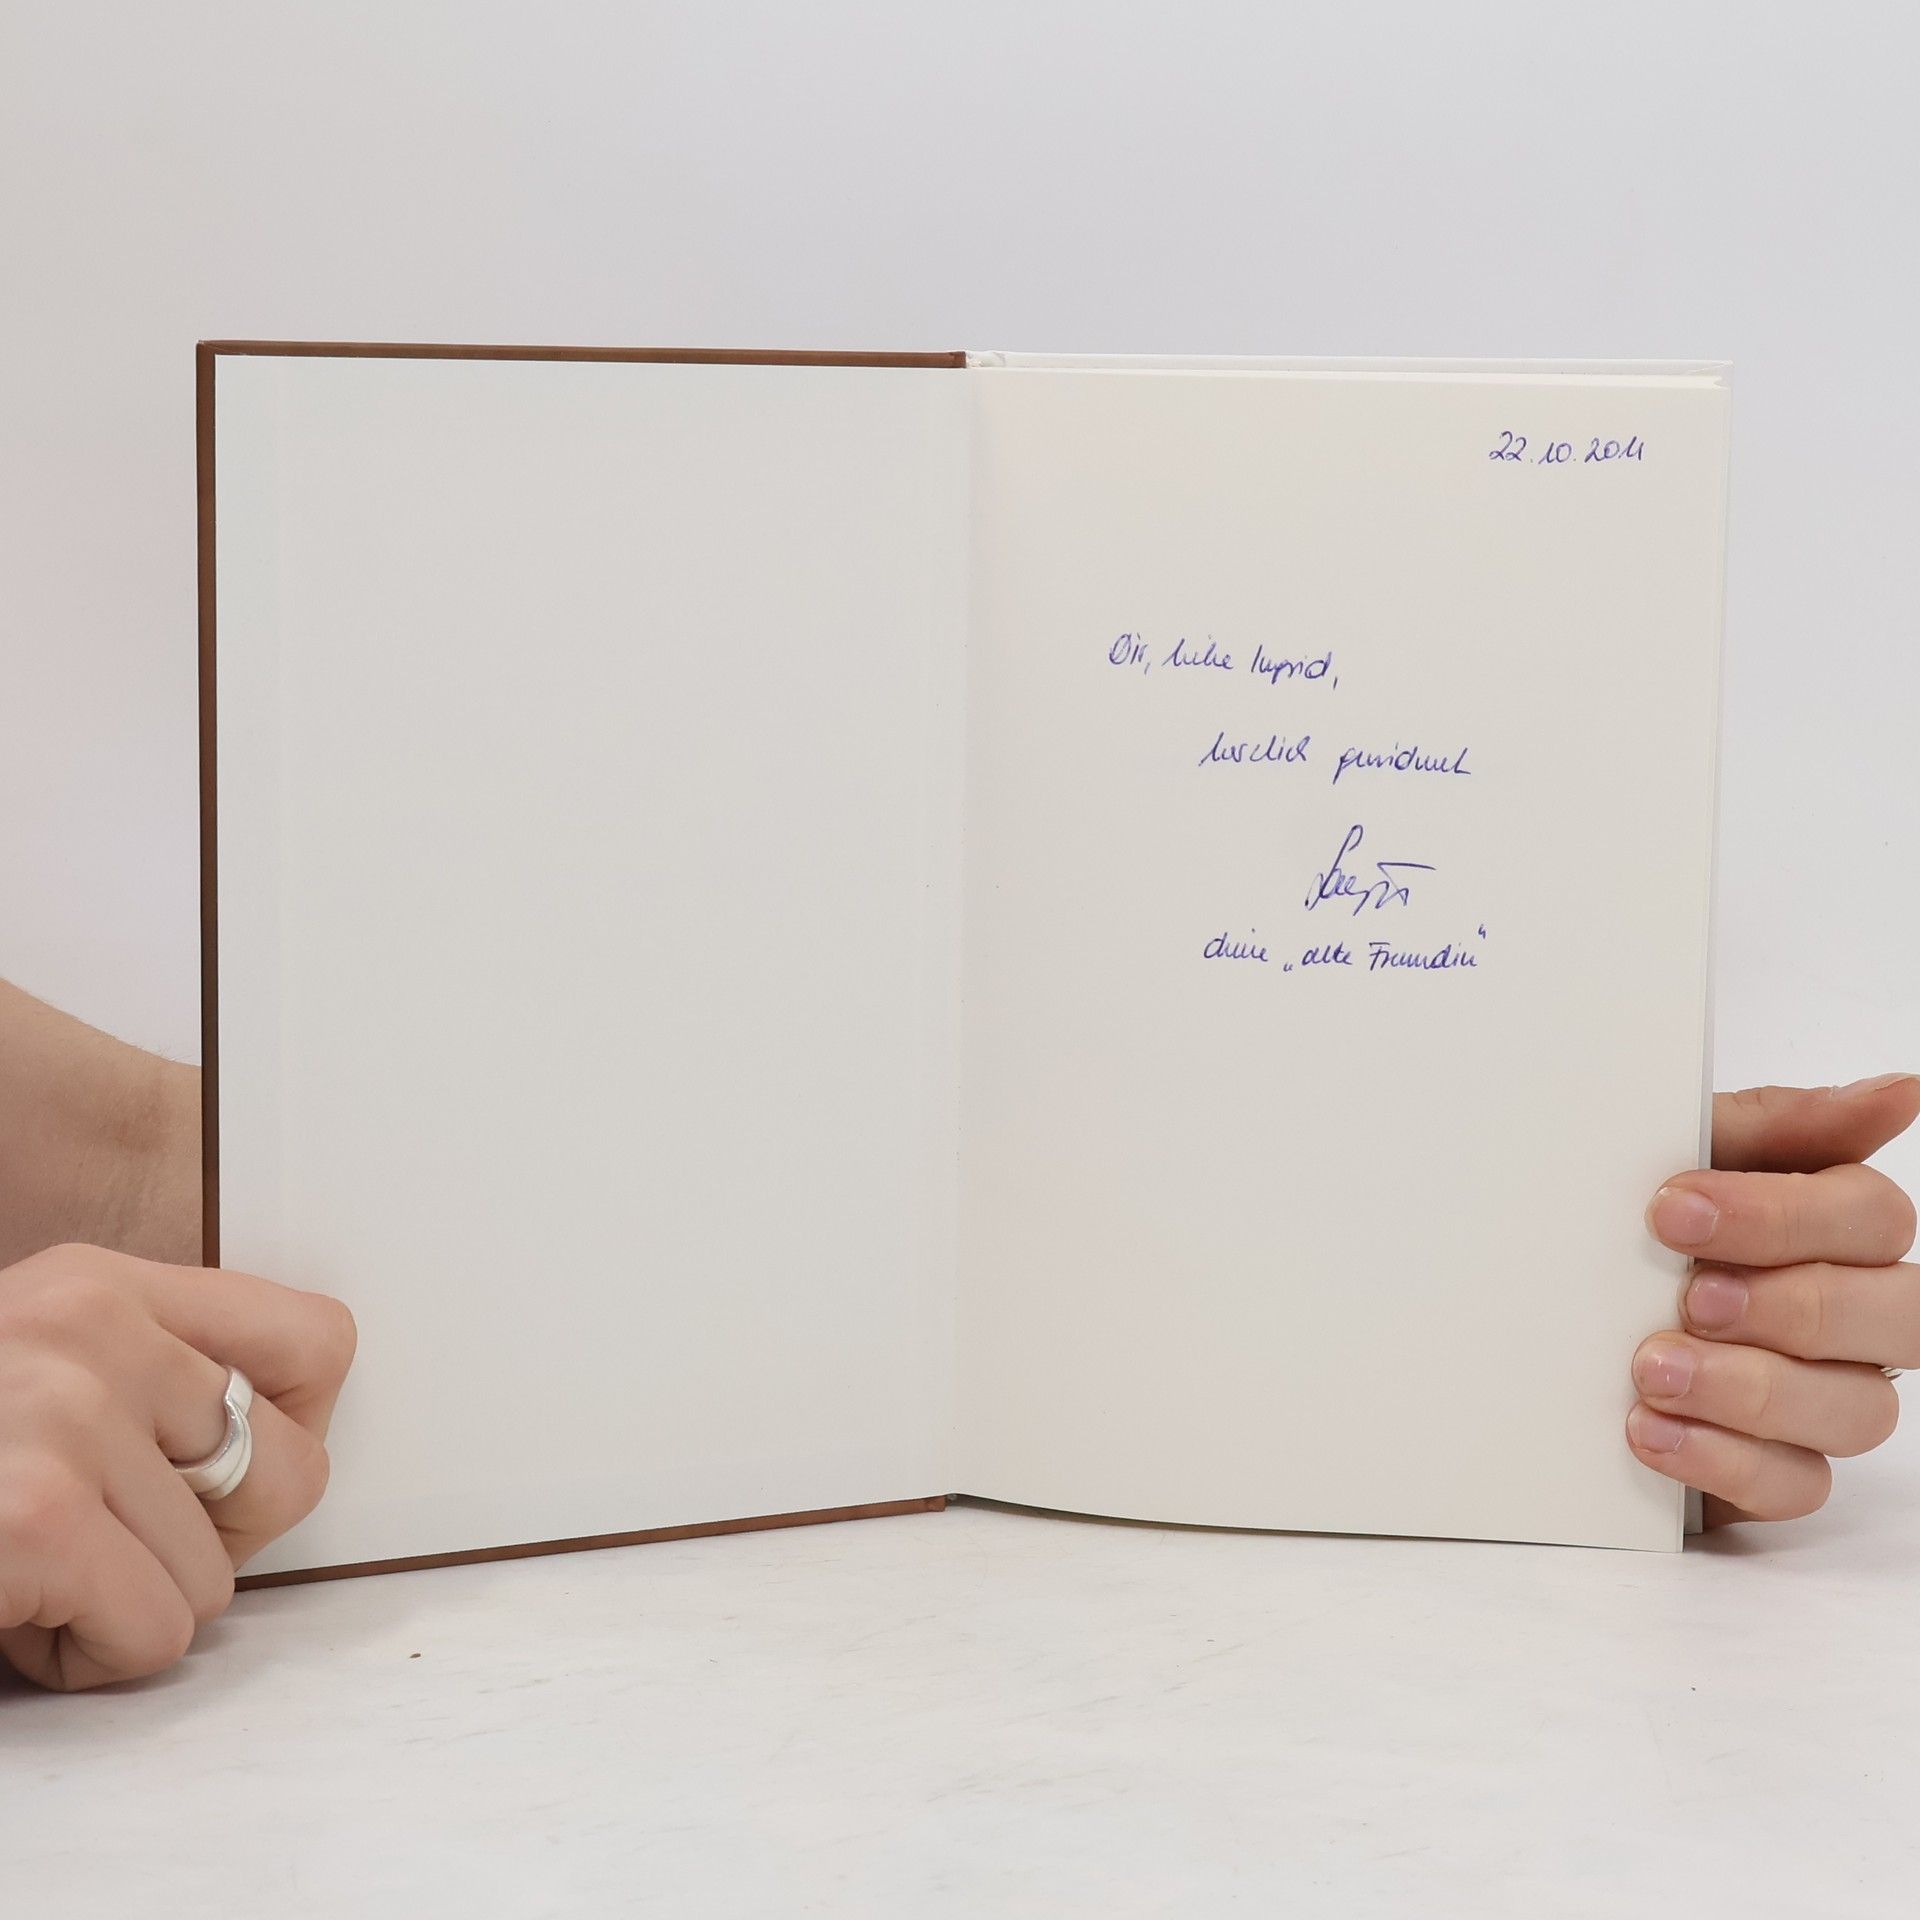 22.10.2011
Dir, liebe Ingrid,
herzlich gewidmet
deine „alte Freundin“